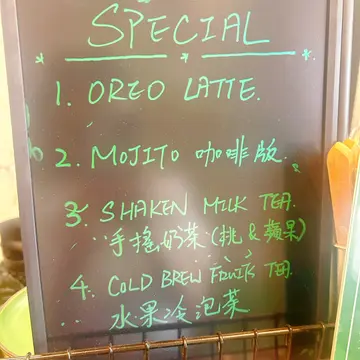 SPECIAL
1. OREO LATTE.
2. MOJITO 咖啡版.
3. SHAKEN MILK TEA.
手搖奶茶 (桃 & 蘋果)
4. COLD BREW FRUITS TEA.
水果冷泡茶